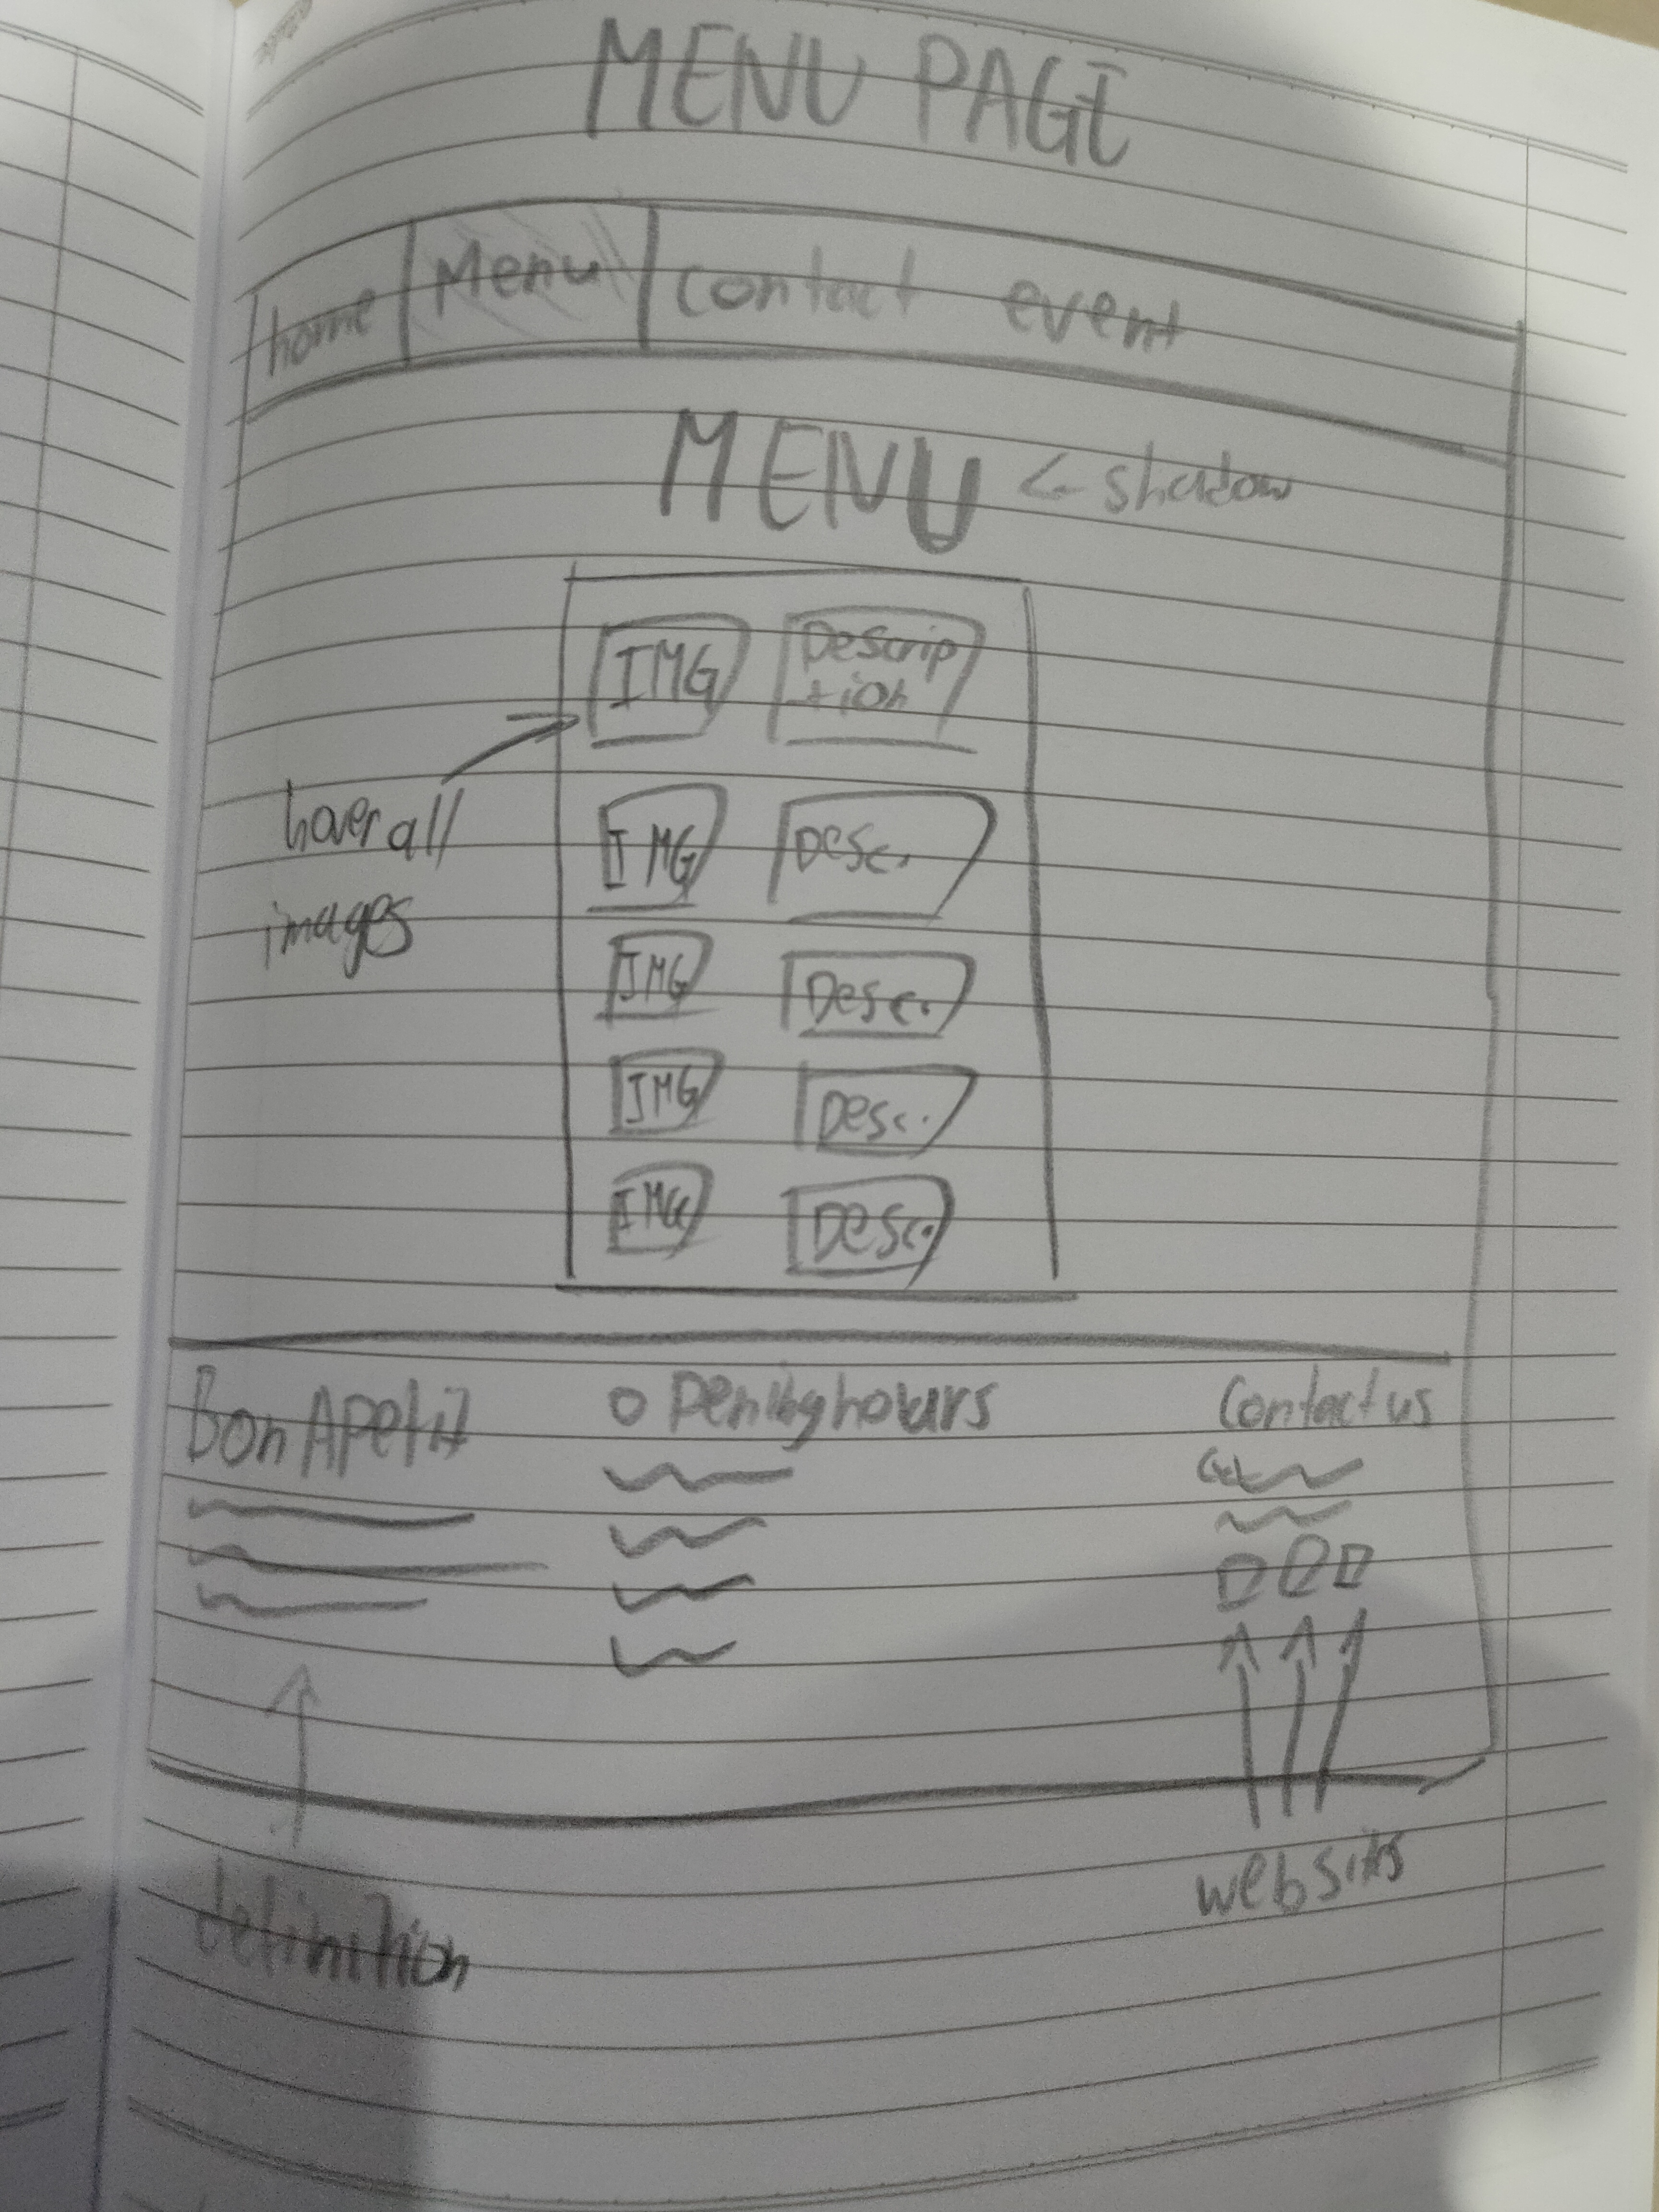 MENU PAGE
home Menu contact event
MENU ← shadow
IMG Descrip
tion
hover all
images
IMG Desc.
IMG Desc.
IMG Desc.
IMG Desc.
Bon Apetit Opening hours Contact us
definition
websits